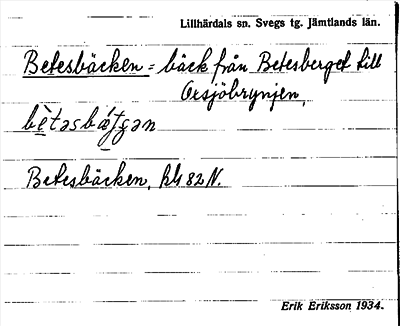 Lillhärdals sn. Svegs tg. Jämtlands län.
Betesbäcken = bäck från Betesberget till
Orsjöbrynjen.
Betesbäcken, 82 N.
Erik Eriksson 1934.